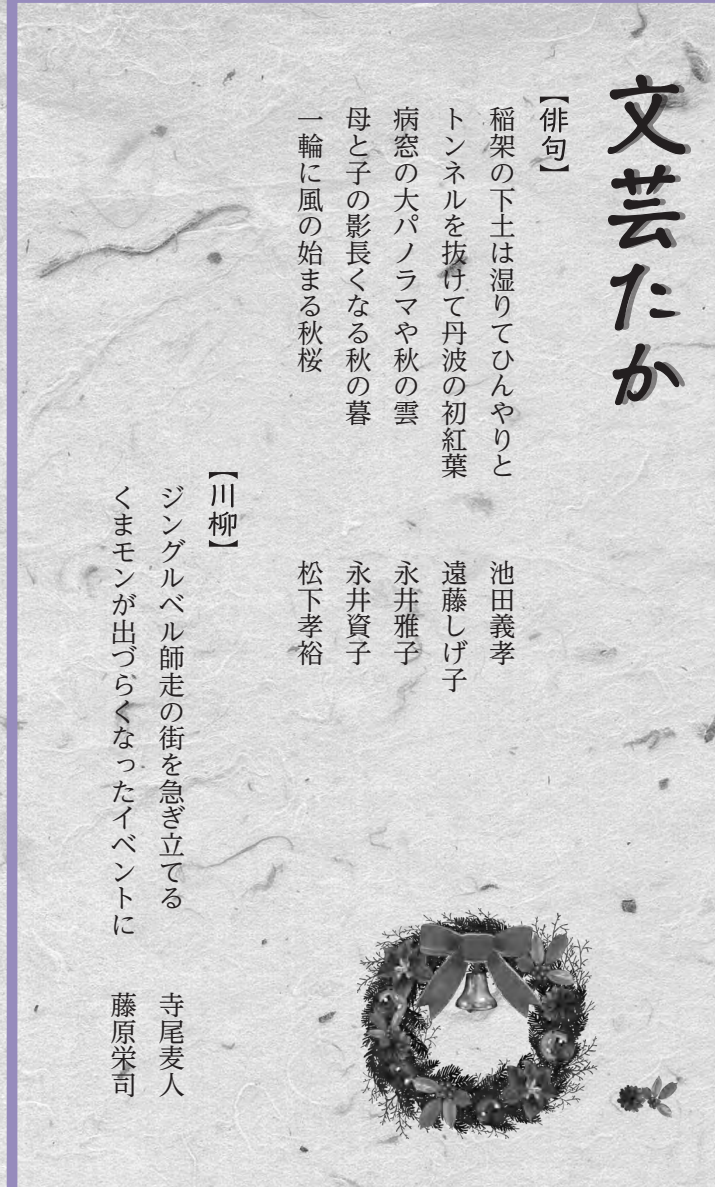 文芸たか
【俳句】
稲架の下土は湿りてひんやりと 池田義孝
トンネルを抜けて丹波の初紅葉 遠藤しげ子
病窓の大パノラマや秋の雲 永井雅子
母と子の影長くなる秋の暮 永井資子
一輪に風の始まる秋桜 松下孝裕
【川柳】
ジングルベル師走の街を急ぎ立てる 寺尾麦人
くまモンが出づらくなったイベントに 藤原栄司